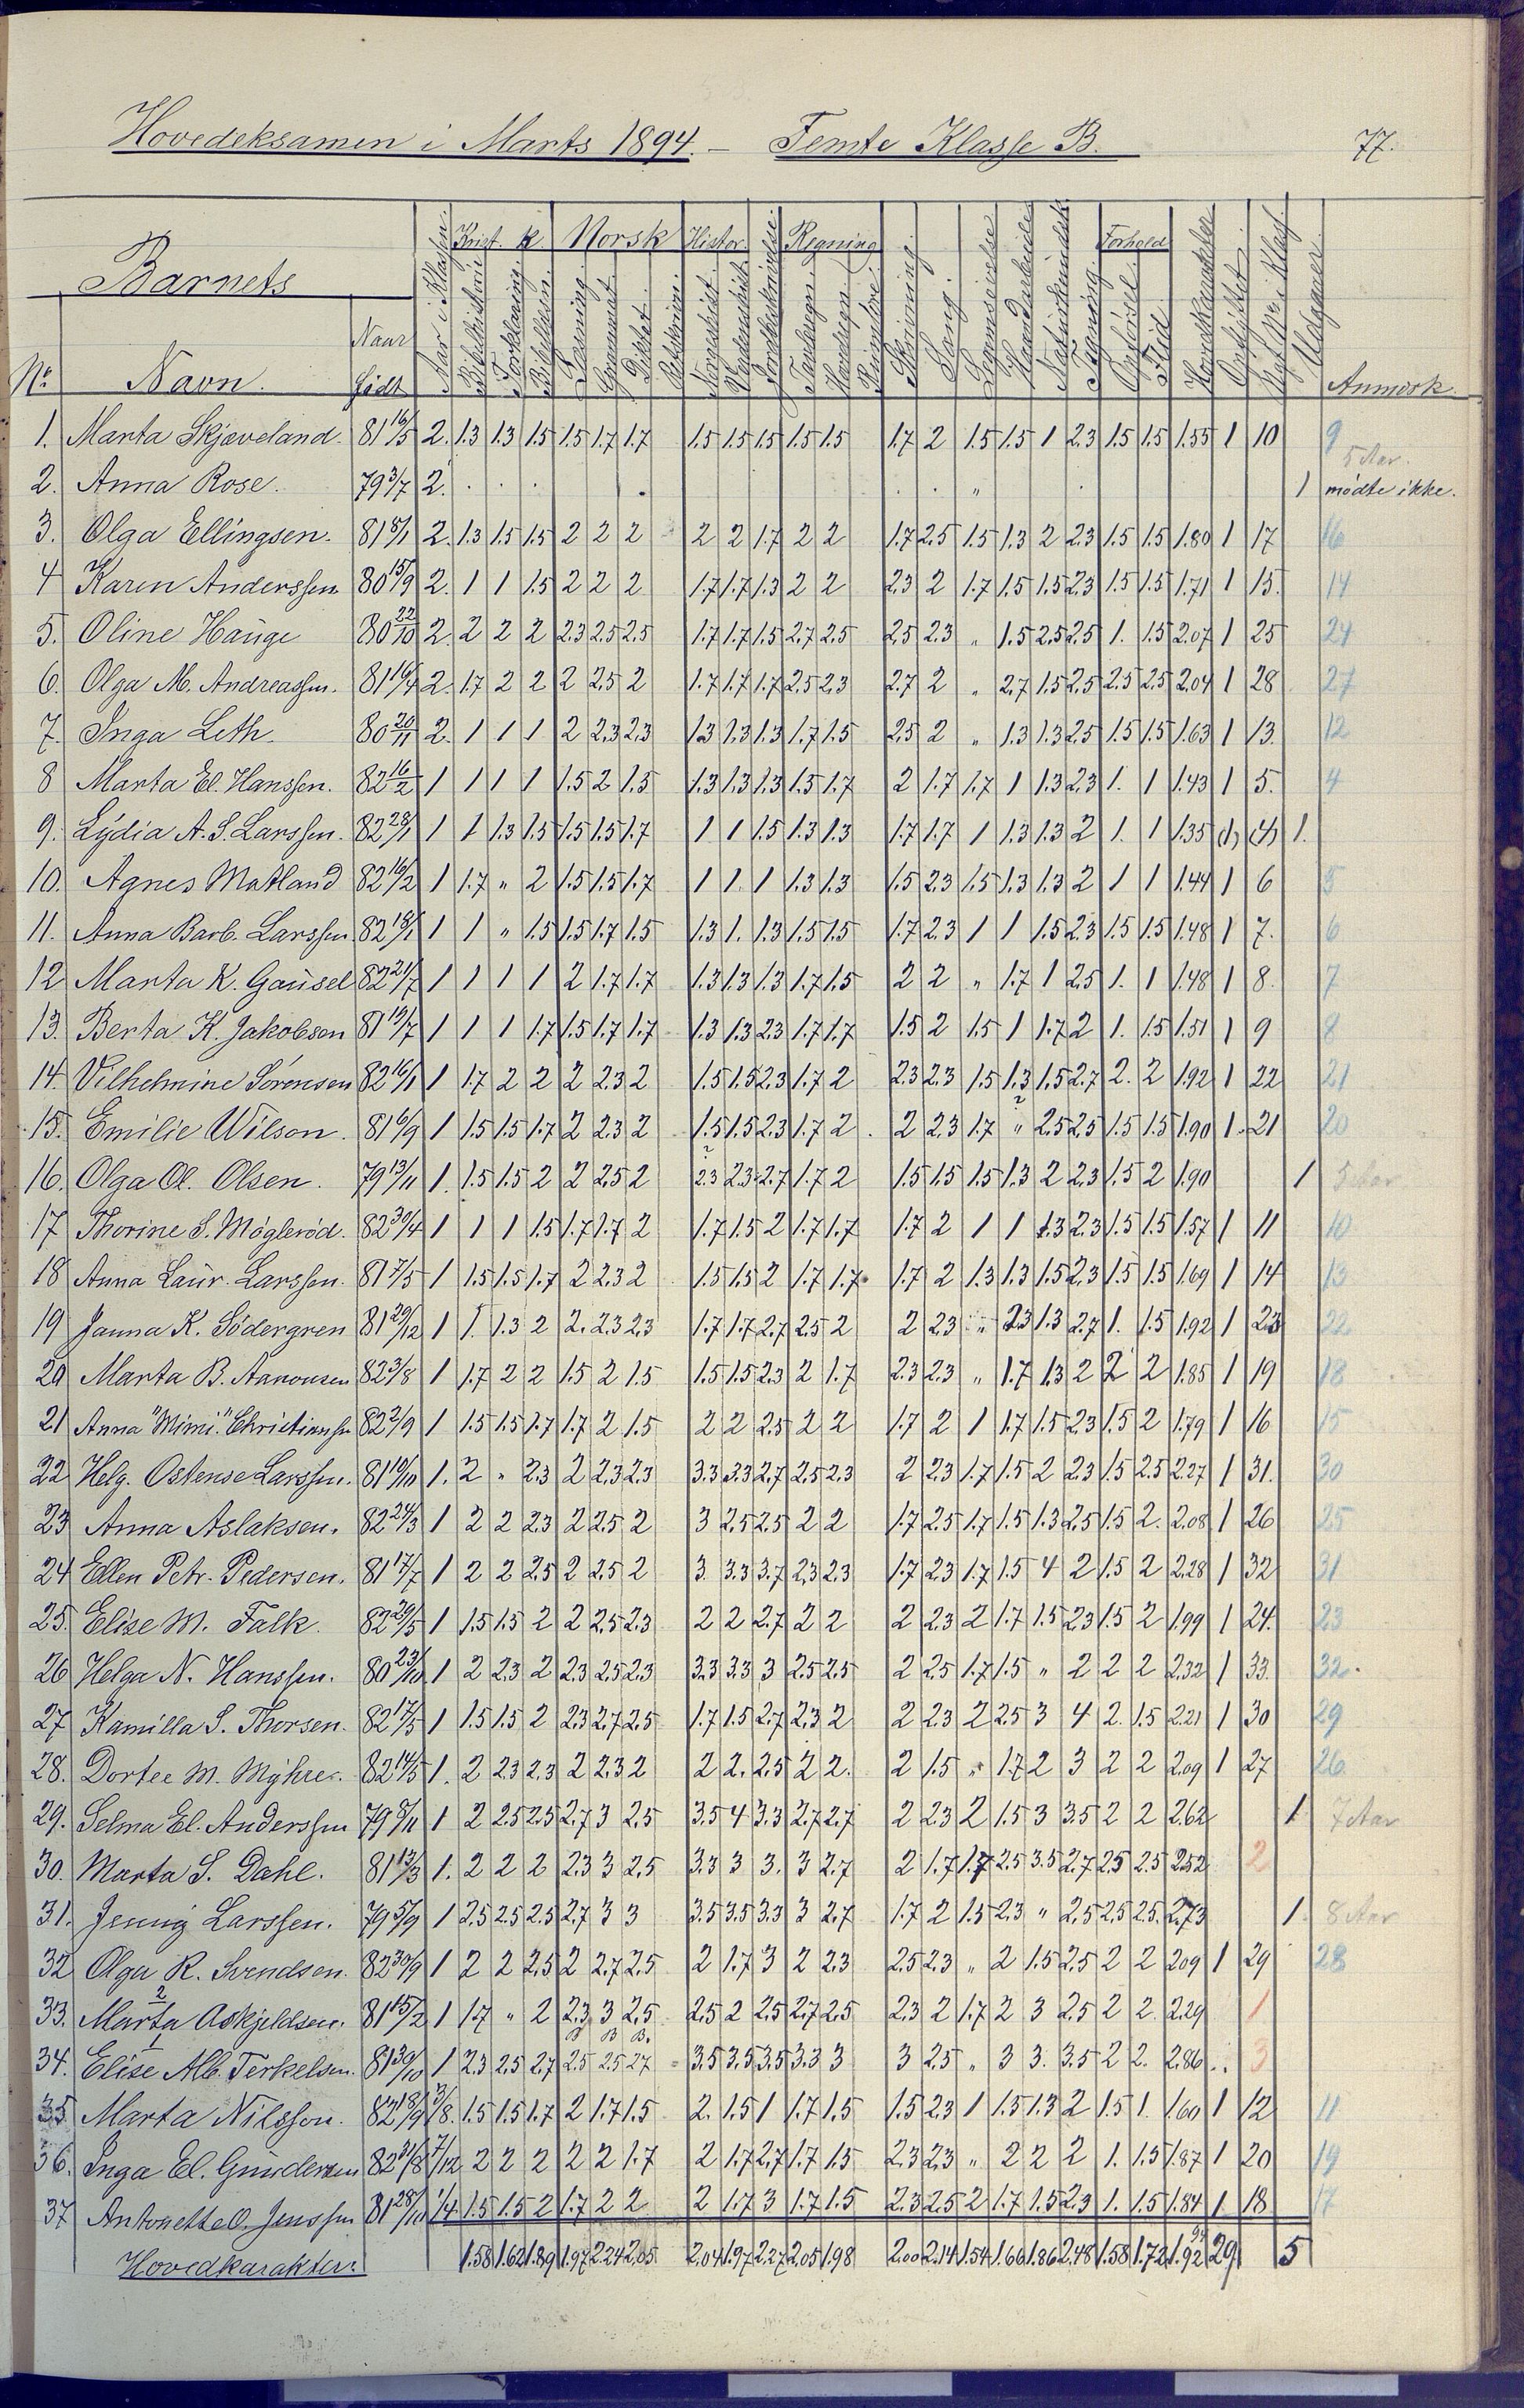 Hovedeksamen i Marts 1894. — Femte Klasse B. 77.
Barnets
Krist. k Norsk Histor. Regning Forhold
No. Navn. Naar født Aar i Klassen. Bibelhistorie Forklaring. Læsning. Grammat. Diktat. Norgeshist. Verdenshist. Jordbeskrivelse Tavleregn. Hovedregn. Skrivning. Sang. Haandarbeide Tegning. Opførsel Flid. Hovedkarakter Opflyttet. Udgaaer. Anmerk.
1. Marta Skjæveland. 81 16/5 2. 1.3 1.3 1.5 1.5 1.7 1.7 1.5 1.5 1.5 1.5 1.5 1.7 2 1.5 1.5 1 2.3 1.5 1.5 1.55 1 10 9
2. Anna Rose. 79 3/7 2. " 1 5 Aar. mødte ikke.
3. Olga Ellingsen. 81 8/1 2. 1.3 1.5 1.5 2 2 2 2 2 1.7 2 2 1.7 2.5 1.5 1.3 2 2.3 1.5 1.5 1.80 1 17 16
4 Karen Anderssen. 80 15/9 2. 1 1 1.5 2 2 2 1.7 1.7 1.3 2 2 2.3 2 1.7 1.5 1.5 2.3 1.5 1.5 1.71 1 15. 14
5. Oline Hauge 80 22/10 2. 2 2 2 2.3 2.5 2.5 1.7 1.7 1.5 2.7 2.5 2.5 2.3 " 1.5 2.5 2.5 1. 1.5 2.07 1 25 24
6. Olga M. Andreassen. 81 16/4 2. 1.7 2 2 2 2.5 2 1.7 1.7 1.7 2.5 2.3 2.7 2 " 2.7 1.5 2.5 2.5 2.5 2.04 1 28 27
7. Inga Leth. 80 20/11 2. 1 1 1 2 2.3 2.3 1.3 1.3 1.3 1.7 1.5 2.5 2 " 1.3 1.3 2.5 1.5 1.5 1.63 1 13. 12
8 Marta El. Hanssen. 82 16/2 1 1 1 1 1.5 2 1.5 1.3 1.3 1.3 1.5 1.7 2 1.7 1.7 1 1.3 2.3 1. 1 1.43 1 5. 4
9. Lydia A. S. Larssen. 82 28/1 1 1 1.3 1.5 1.5 1.5 1.7 1 1 1.5 1.3 1.3 1.7 1.7 1 1.3 1.3 2 1. 1 1.35 (1) (4) 1.
10. Agnes Matland 82 16/2 1 1.7 " 2 1.5 1.5 1.7 1 1. 1 1.3 1.3 1.5 2.3 1.5 1.3 1.3 2 1 1 1.44 1 6 5
11. Anna Barb. Larssen 82 18/1 1 1 " 1.5 1.5 1.7 1.5 1.3 1. 1.3 1.5 1.5 1.7 2.3 1 1 1.5 2.3 1.5 1.5 1.48 1 7. 6
12 Marta K. Gausel 82 21/7 1 1 1 1 2 1.7 1.7 1.3 1.3 1.3 1.7 1.5 2 2 " 1.7 1 2.5 1. 1 1.48 1 8. 7
13. Berta K. Jakobsen 81 19/7 1 1 1 1.7 1.5 1.7 1.7 1.3 1.3 2.3 1.7 1.7 1.5 2 1.5 1 1.7 2 1. 1.5 1.51 1 9 8
14. Vilhelmine Sørensen 82 16/1 1 1.7 2 2 2 2.3 2 1.5 1.5 2.3 1.7 2 2.3 2.3 1.5 1.3 1.5 2.7 2. 2 1.92 1 22 21
15. Emilie Wilson. 81 6/9 1 1.5 1.5 1.7 2 2.3 2 1.5 1.5 2.3 1.7 2. 2 2.3 1.7 " 2.5 2.5 1.5 1.5 1.90 1. 21 20
16. Olga Ol. Olsen. 79 13/11 1. 1.5 1.5 2 2 2.5 2 2.3 2.3 2.7 1.7 2 1.5 1.5 1.5 1.3 2 2.3 1.5 2 1.90 1 5 Aar
17 Thorine S. Møglerød. 82 30/4 1 1 1 1.5 1.7 1.7 2 1.7 1.5 2 1.7 1.7 1.7 2 1 1 1.3 2.3 1.5 1.5 1.57 1 11 10
18 Anna Laur. Larssen. 81 7/5 1 1.5 1.5 1.7 2 2.3 2 1.5 1.5 2 1.7 1.7 1.7 2 1.3 1.3 1.5 2.3 1.5 1.5 1.69 1 14 13
19 Janna K. Södergren 81 29/12 1 1. 1.3 2 2. 2.3 2.3 1.7 1.7 2.7 2.5 2 2 2.3 " 2.3 1.3 2.7 1. 1.5 1.92 1 23 22
20 Marta B. Aanonsen 82 3/8 1 1.7 2 2 1.5 2 1.5 1.5 1.5 2.3 2 1.7 2.3 2.3 " 1.7 1.3 2 2 2 1.85 1 19 18
21 Anna "Mimi" Christianssen 82 2/9 1 1.5 1.5 1.7 1.7 2 1.5 2 2 2.5 2 2 1.7 2 1 1.7 1.5 2.3 1.5 2 1.79 1 16 15
22 Helg. Ostense Larssen. 81 19/10 1. 2 " 2.3 2 2.3 2.3 3.3 3.3 2.7 2.5 2.3 2 2.3 1.7 1.5 2 2.3 1.5 2.5 2.27 1 31. 30
23 Anna Aslaksen. 82 24/3 1 2 2 2.3 2 2.5 2 3 2.5 2.5 2 2 1.7 2.5 1.7 1.5 1.3 2.5 1.5 2. 2.08 1 26 25
24 Ellen Petr. Pedersen. 81 17/7 1 2 2 2.5 2 2.5 2 3. 3.3 3.7 2.3 2.3 1.7 2.3 1.7 1.5 4 2 1.5 2 2.28 1 32 31
25. Elise M. Falk 82 29/5 1 1.5 1.5 2 2 2.5 2.3 2 2 2.7 2 2 2 2.3 2 1.7 1.5 2.3 1.5 2 1.99 1 24. 23
26 Helga N. Hanssen. 80 23/10 1 2 2.3 2 2.3 2.5 2.3 3.3 3.3 3 2.5 2.5 2 2.5 1.7 1.5 " 2 2 2 2.32 1 33. 32.
27 Kamilla S. Thorsen. 82 17/5 1 1.5 1.5 2 2.3 2.7 2.5 1.7 1.5 2.7 2.3 2 2 2.3 2 2.5 3 4 2. 1.5 2.21 1 30 29
28. Dortee M. Myhre. 82 14/5 1. 2 2.3 2.3 2 2.3 2 2 2. 2.5 2 2. 2 1.5 " 1.7 2 3 2 2 2.09 1 27 26
29. Selma El. Anderssen 79 8/11 1 2 2.5 2.5 2.7 3 2.5 3.5 4 3.3 2.7 2.7 2 2.3 2 1.5 3 3.5 2 2 2.62 1 7 Aar
30. Marta S. Dahl. 81 13/3 1. 2 2 2 2.3 3 2.5 3.3 3 3. 3 2.7 2 1.7 1.7 2.5 3.5 2.7 2.5 2.5 2.52 2
31. Jenny Larssen. 79 5/9 1 2.5 2.5 2.5 2.7 3 3 3.5 3.5 3.3 3 2.7 1.7 2 1.5 2.3 " 2.5 2.5 2.5 2.73 1. 8 Aar
32 Olga R. Svendsen. 82 30/9 1 2 2 2.5 2 2.7 2.5 2 1.7 3 2 2.3 2.5 2.3 " 2 1.5 2.5 2 2 2.09 1 29 28
33. Marta Askjeldsen. 81 15/2 1 1.7 " 2 2.3 3 2.5 2.5 2 2.5 2.7 2.5 2.3 2 1.7 2 3 2.5 2 2. 2.29 1
34. Elise Alb. Terkelsen. 81 30/10 1 2.3 2.5 2.7 2.5 2.5 2.7 3.5 3.5 3.5 3.3 3 3 2.5 " 3 3. 3.5 2 2. 2.86 3
35 Marta Nilssen. 82 18/9 3/8. 1.5 1.5 1.7 2 1.7 1.5 2. 1.5 1 1.7 1.5 1.5 2.3 1 1.5 1.3 2 1.5 1. 1.60 1 12 11
36. Inga El. Gundersen 82 31/8 7/12 2 2 2 2 2 1.7 2 1.7 2.7 1.7 1.5 2.3 2.3 " 2 2 2 1. 1.5 1.87 1 20 19
37 Antonette O. Jenssen 81 28/10 1/4 1.5 1.5 2 1.7 2 2 2 1.7 3 1.7 1.5 2.3 2.5 2 1.7 1.5 2.3 1. 1.5 1.84 1. 18 17
Hovedkarakter. 1.58 1.62 1.89 1.97 2.24 2.05 2.04 1.97 2.27 2.05 1.98 2.00 2.14 1.54 1.66 1.86 2.48 1.58 1.72 1.92 29 5